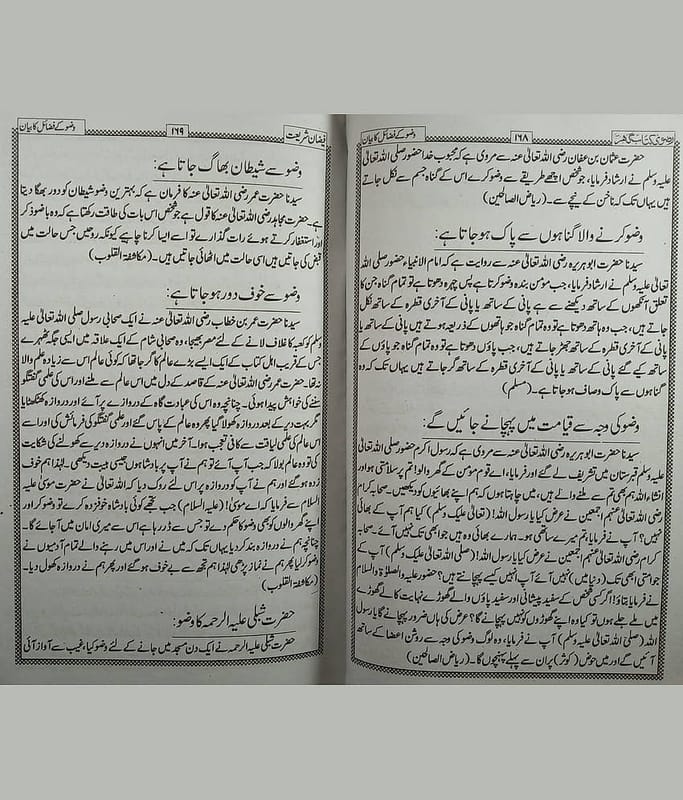 رضوی کتاب گھر ۱۶۸ وضو کے فضائل کا بیان
حضرت عثمان بن عفان رضی اللہ تعالیٰ عنہ سے مروی ہے کہ محبوب خدا حضور صلی اللہ تعالیٰ
علیہ وسلم نے ارشاد فرمایا، جو شخص اچھے طریقے سے وضو کرے اس کے گناہ جسم سے نکل جاتے
ہیں یہاں تک کہ ناخن کے نیچے سے۔ (ریاض الصالحین)
وضو کرنے والا گناہوں سے پاک ہو جاتا ہے:
سیدنا حضرت ابو ہریرہ رضی اللہ تعالیٰ عنہ سے روایت ہے کہ امام الانبیاء حضور صلی اللہ
تعالیٰ علیہ وسلم نے ارشاد فرمایا، جب مؤمن بندہ وضو کرتا ہے پس چہرہ دھوتا ہے تو تمام گناہ جن کا
تعلق آنکھوں کے ساتھ دیکھنے سے ہے پانی کے ساتھ یا پانی کے آخری قطرہ کے ساتھ نکل
جاتے ہیں، جب وہ ہاتھ دھوتا ہے تو وہ تمام گناہ جو ہاتھوں کے ذریعہ ہوتے ہیں پانی کے ساتھ یا
پانی کے آخری قطرہ کے ساتھ جھڑ جاتے ہیں، جب پاؤں دھوتا ہے تو وہ تمام گناہ جو پاؤں کے
ساتھ کیے گئے پانی کے ساتھ یا پانی کے آخری قطرہ کے ساتھ گر جاتے ہیں یہاں تک کہ وہ
گناہوں سے پاک وصاف ہو جاتا ہے۔ (مسلم)
وضو کی وجہ سے قیامت میں پہچانے جائیں گے:
سیدنا حضرت ابو ہریرہ رضی اللہ تعالیٰ عنہ سے مروی ہے کہ رسول اکرم حضور صلی اللہ تعالیٰ
علیہ وسلم قبرستان میں تشریف لے گئے اور فرمایا، اے قوم مؤمن کے گھر والو! تم پر سلامتی ہو اور
انشاء اللہ ہم بھی تم سے ملنے والے ہیں، میں چاہتا ہوں کہ ہم اپنے بھائیوں کو دیکھیں۔ صحابہ کرام
رضی اللہ تعالیٰ عنہم اجمعین نے عرض کیا یا رسول اللہ! (تعالیٰ علیک وسلم) کیا ہم آپ کے بھائی
نہیں؟ آپ نے فرمایا، تم میرے ساتھی ہو۔ ہمارے بھائی وہ ہیں جو ابھی تک نہیں آئے۔ صحابہ
کرام رضی اللہ تعالیٰ عنہم اجمعین نے عرض کیا یا رسول اللہ! (صلی اللہ تعالیٰ علیک وسلم) آپ کے
جو امتی ابھی تک (دنیا میں) نہیں آئے آپ انہیں کیسے پہچانتے ہیں؟ حضور علیہ الصلوٰۃ والسلام
نے فرمایا بتاؤ! اگر کسی شخص کے سفید پیشانی اور سفید پاؤں والے گھوڑے نہایت کالے گھوڑے
میں ملے جلے ہوں تو کیا وہ اپنے گھوڑوں کو نہیں پہچانے گا؟ عرض کی ہاں ضرور پہچانے گا یا رسول
اللہ (صلی اللہ تعالیٰ علیہ وسلم) آپ نے فرمایا، وہ لوگ وضو کی وجہ سے روشن اعضا کے ساتھ
آئیں گے اور میں حوض (کوثر) پر ان سے پہلے پہنچوں گا۔ (ریاض الصالحین)
فیضان شریعت ۱۶۹ وضو کے فضائل کا بیان
وضو سے شیطان بھاگ جاتا ہے:
سیدنا حضرت عمر رضی اللہ تعالیٰ عنہ کا فرمان ہے کہ بہترین وضو شیطان کو دور بھگا دیتا
ہے۔ حضرت مجاہد رضی اللہ تعالیٰ عنہ کا قول ہے جو شخص اس بات کی طاقت رکھتا ہے کہ وہ باوضو ذکر
اور استغفار کرتے ہوئے رات گذارے تو اسے ایسا کرنا چاہیے کیونکہ روحیں جس حالت میں
قبض کی جاتیں ہیں اسی حالت میں اٹھائی جاتیں ہیں۔ (مکاشفۃ القلوب)
وضو سے خوف دور ہو جاتا ہے:
سیدنا حضرت عمر بن خطاب رضی اللہ تعالیٰ عنہ نے ایک صحابی رسول صلی اللہ تعالیٰ علیہ
وسلم کو کعبہ کا غلاف لانے کے لئے مصر بھیجا، وہ صحابی شام کے ایک علاقہ میں ایسی جگہ ٹھہرے
جس کے قریب اہل کتاب کے ایک ایسے بڑے عالم کا گھر جا تھا کہ کوئی عالم اس سے زیادہ علم والا
نہ تھا۔ حضرت عمر رضی اللہ تعالیٰ عنہ کے قاصد کے دل میں اس عالم سے ملنے اور اس کی علمی گفتگو
سننے کی خواہش پیدا ہوئی۔ چنانچہ وہ اس کی عبادت گاہ کے دروازے پر آئے اور دروازہ کھٹکھٹایا
مگر بہت دیر کے بعد دروازہ کھولا گیا پھر وہ عالم کے پاس گئے اور علمی گفتگو کی فرمائش کی اور اسے
اس عالم کی علمی لیاقت سے کافی تعجب ہوا۔ آخر میں انہوں نے دروازہ دیر سے کھولنے کی شکایت
کی تو وہ عالم بولا کہ جب آپ آئے تو ہم نے آپ پر بادشاہوں جیسی ہیبت دیکھی۔ لہٰذا ہم خوف
زدہ ہو گئے اور ہم نے آپ کو دروازہ پر اس لئے روک دیا کہ اللہ تعالیٰ نے حضرت موسیٰ علیہ
السلام سے فرمایا کہ اے موسیٰ! (علیہ السلام) جب تجھے کوئی بادشاہ خوفزدہ کرے تو وضو کر اور
اپنے گھر والوں کو بھی وضو کا حکم دے تو جس سے ڈر رہا ہے اس سے میری امان میں آ جائے گا۔
چنانچہ ہم نے دروازہ بند کر دیا یہاں تک کہ میں نے اور اس میں رہنے والے تمام آدمیوں نے
وضو کر لیا پھر ہم نے نماز پڑھی لہٰذا ہم تجھ سے بے خوف ہو گئے اور پھر ہم نے دروازہ کھول دیا۔
(مکاشفۃ القلوب)
حضرت شبلی علیہ الرحمہ کا وضو:
حضرت شبلی علیہ الرحمہ نے ایک دن مسجد میں جانے کے لئے وضو کیا، غیب سے آواز آئی